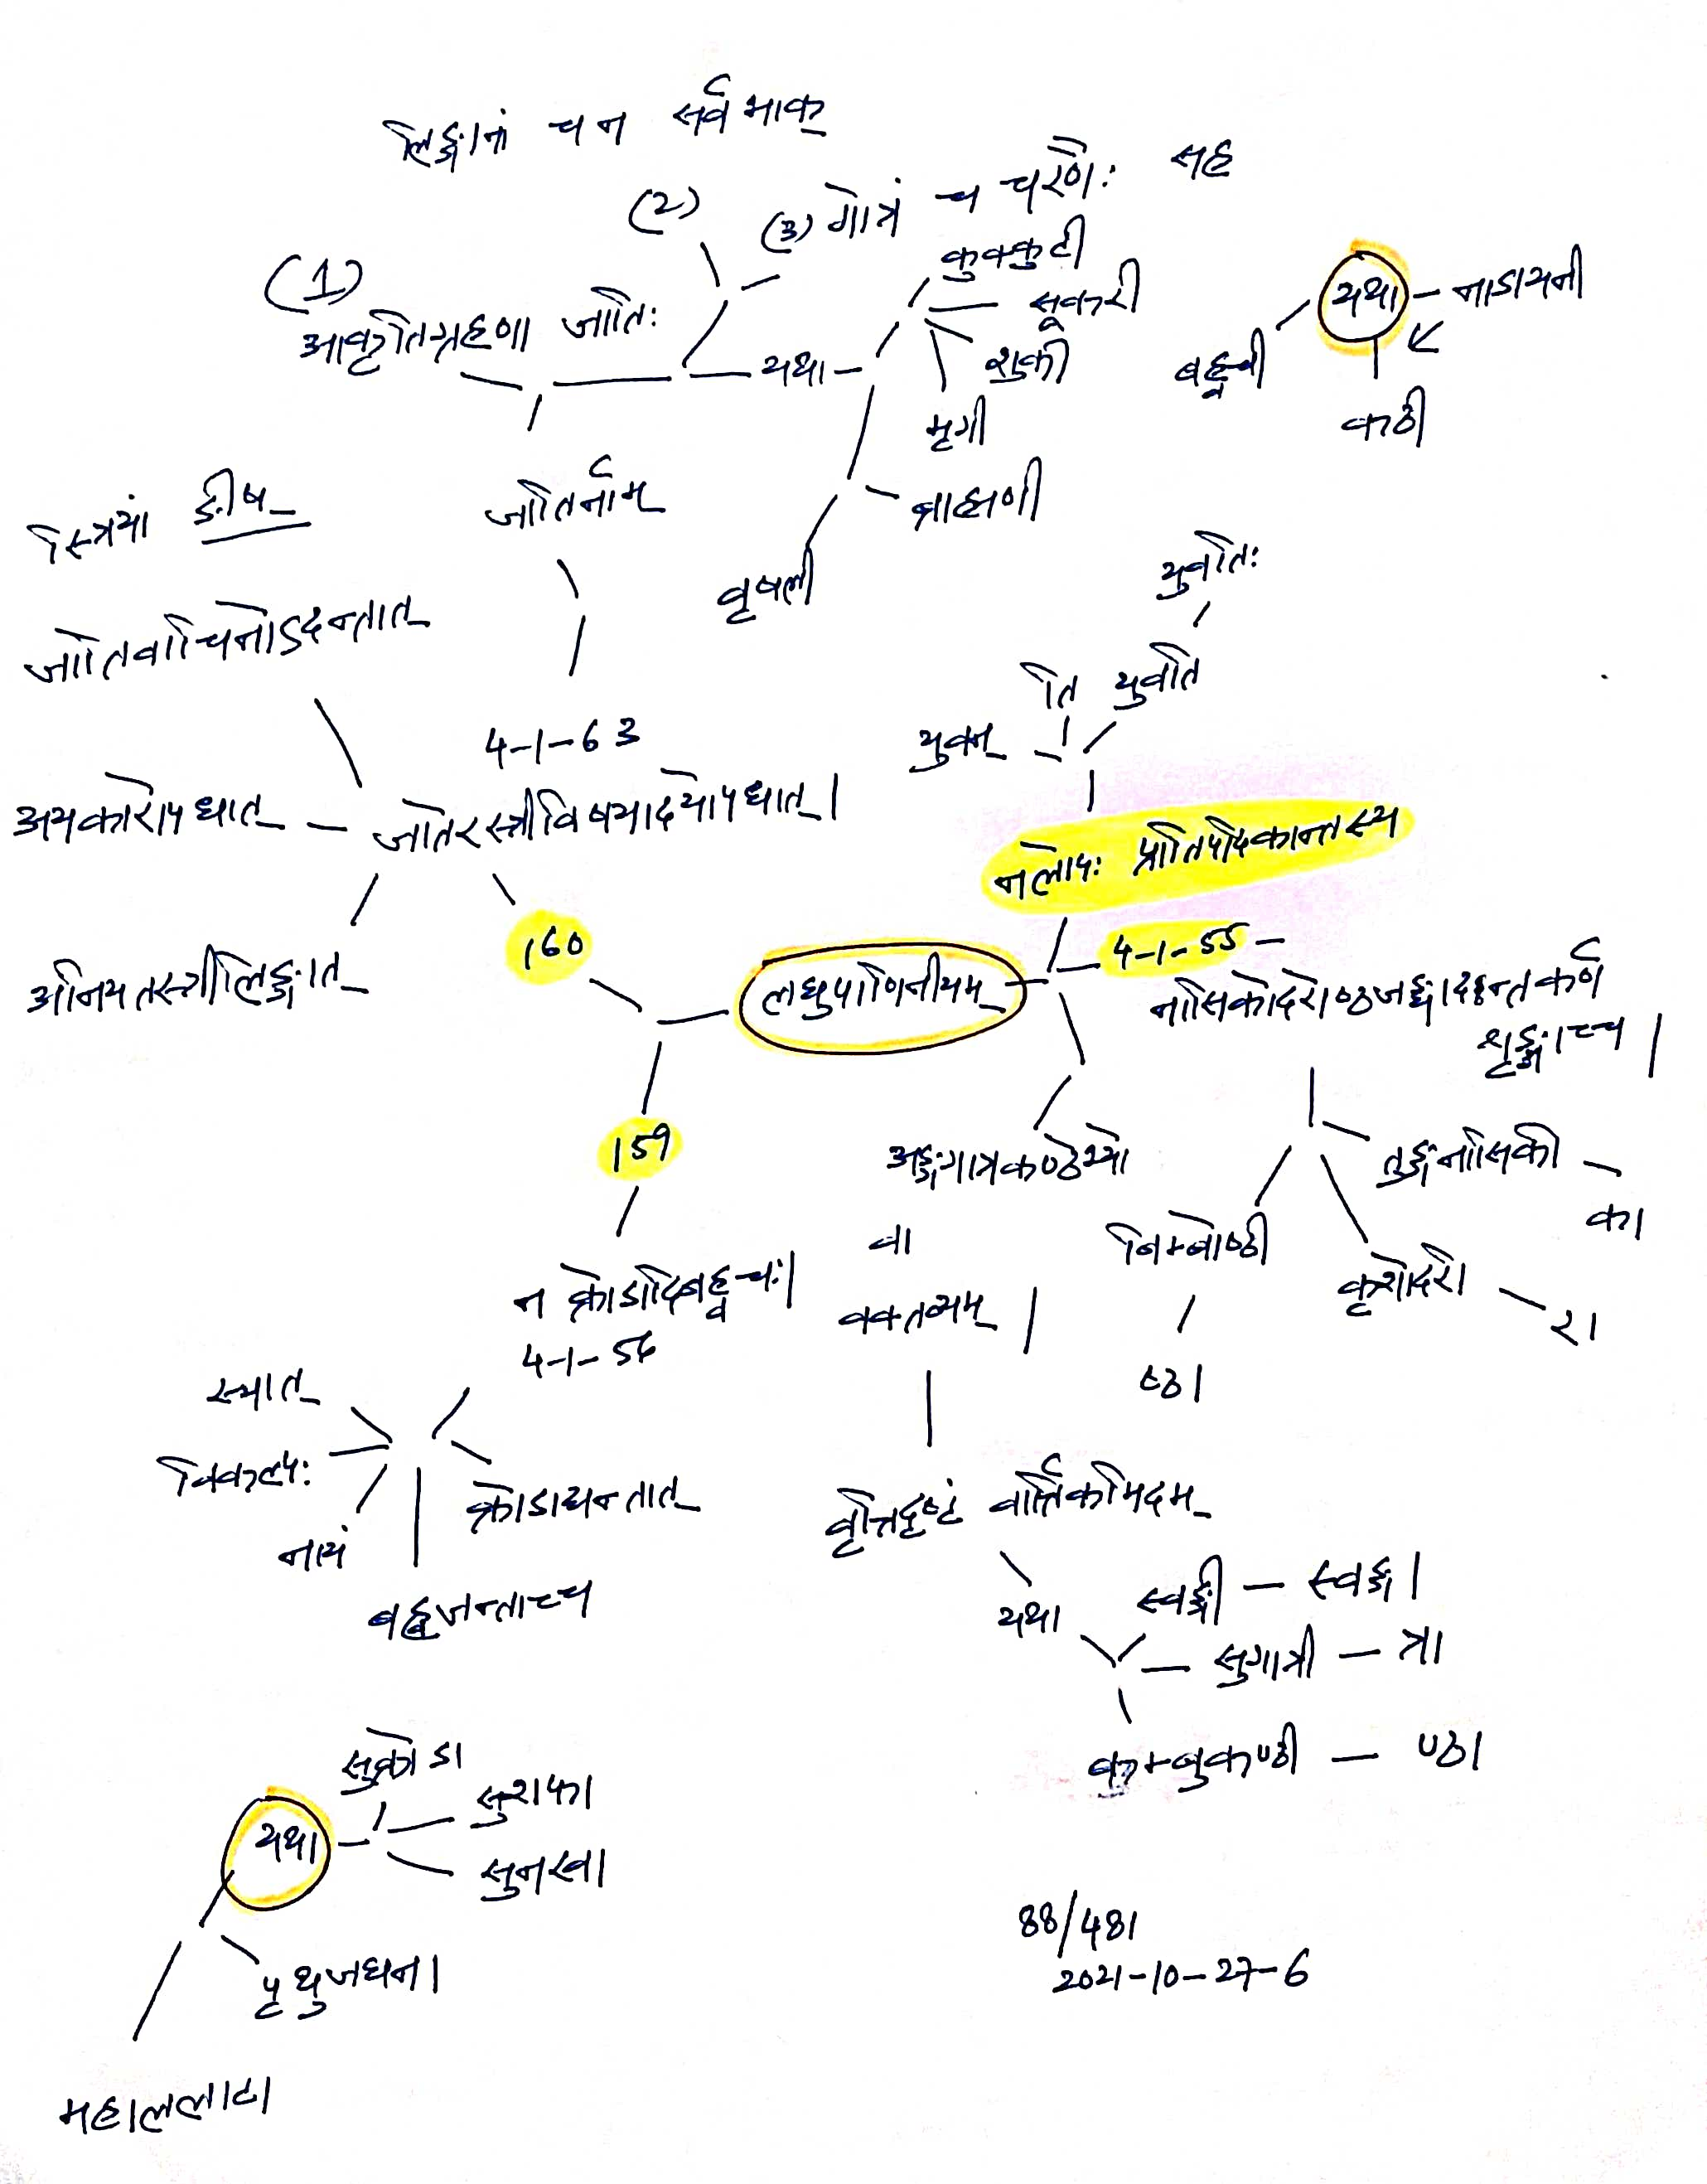 लिङ्गानां च न सर्वभाक्
(2)
(3) गोत्रं च चरणैः सह
(1)
आकृतिग्रहणा जातिः
यथा
कुक्कुटी
सूकरी
शुकी
मृगी
ब्राह्मणी
वृषली
यथा
नाडायनी
बह्वृची
कठी
स्त्रियां ङीष्
जातिर्नाम
जातिवाचिनोऽदन्तात्
4-1-63
अयकारोपधात्
जातेरस्त्रीविषयादयोपधात् ।
अनियतस्त्रीलिङ्गात्
160
युवतिः
ति युवति
युवन्
नलोपः प्रातिपदिकान्तस्य
लघुपाणिनीयम्
4-1-55 –
नासिकोदरोष्ठजङ्घादन्तकर्ण
शृङ्गाच्च ।
159
अङ्गगात्रकण्ठेभ्यो
वा
वक्तव्यम् ।
तुङ्गनासिकी –
का
बिम्बोष्ठी
ष्ठा
कृशोदरी
रा
न क्रोडादिबह्वचः।
4-1-56
स्यात्
विकल्पः
नायं
क्रोडाद्यन्तात्
बह्वजन्ताच्च
वृत्तिदृष्टं वार्त्तिकमिदम्
यथा
स्वङ्गी – स्वङ्गा
सुगात्री – त्रा
कम्बुकण्ठी – ण्ठा
सुक्रोडा
यथा
सुशफा
सुनखा
पृथुजघना
महाललाटा
88/481
2021-10-27-6